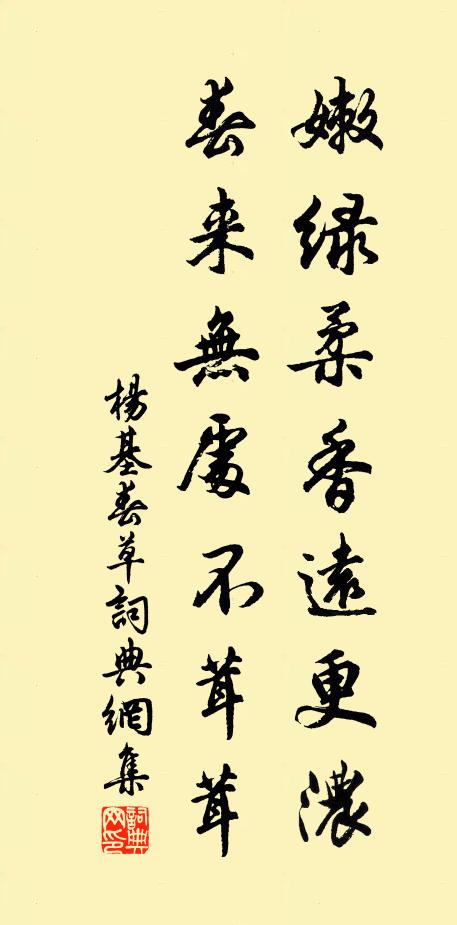 嫩綠柔香遠更濃
春来無處不茸茸
楊基春草詞典網集
詞典網印